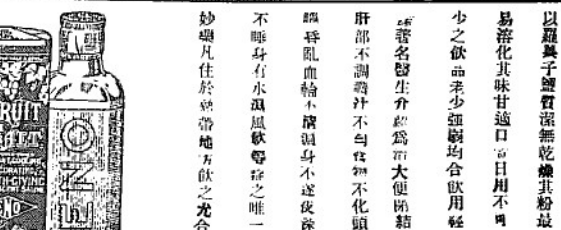 以羅菓子鹽質潔無乾燥其粉最
易溶化其味甘適口 日用不可
少之飲品老少强弱均合飲用經
著名醫生介紹爲治大便閉結
肝部不調膽汁不勻食物不化頭
腦昏亂血輪不清週身不遂夜深
不睡身有水濕風 等症之唯一
妙藥凡住於熱帶地方飲之尤合
ENO
FRUIT
SALT
ENO